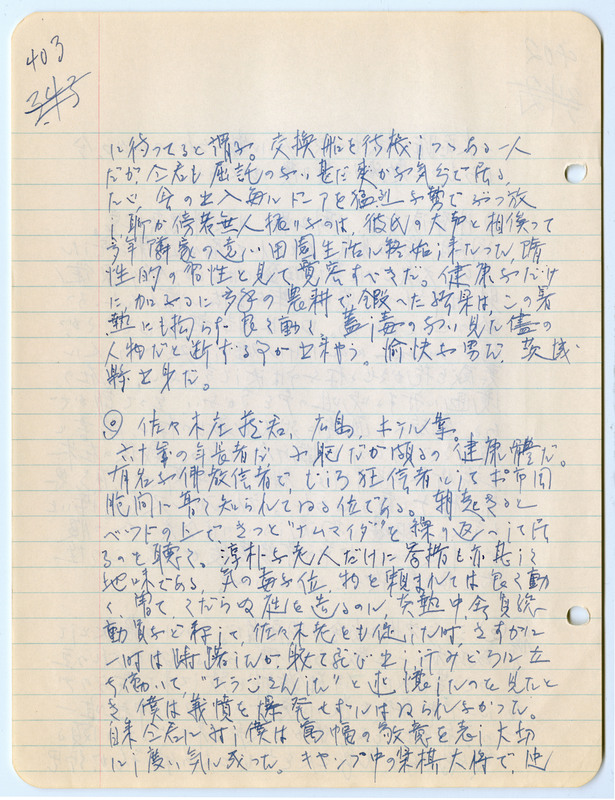 403
345
に待ってると謂ふ。交換船を待機しつゝある一人
だが、今君も屈託のない甚だ爽かな気分で居る。
たゞ、今の出入毎にドアを猛烈な勢でぶっ放
し、聊か傍若無人振りなのは、彼氏の大声と相俟って
多年隣家の遠い田園生活に終始し来たった、惰
性的の習性と見て寛容すべきだ。健康なだけ
に、加ふるに多年の農耕で鍛へた結果は、この暑
熱にも拘らず良く動く。蓋し毒のない見た儘の
人物だと断ずる事が出来やう。愉快な男だ。茨城
縣出身だ。
◎ 佐々木庄蔵君、広島、ホテル業。
六十峯の年長者だが、頗るの健康體だ。
有名な佛教信者で、むしろ狂信者としてポ市同
胞間に普く知られてゐる位である。朝起きると
ベッドの上で、きっと"ナムマイダ"と繰り返へして居
るのを聴く。淳朴な老人だけに答揩も亦甚しく
地味である。気の毒な位、物を頼まれては良く動
く。曽て、くだらぬ社を造るのに、炎熱中、全員総
動員など称して、佐々木老とも促した時、さすがに
一時は躊躇したが敢て飛び出し汗みどろに立
ち働いて、"えらうござんした"と述懐したのを見たと
き、僕は義憤を爆発せずにはゐられなかった。
自来今君に対し僕は萬幅の敬意を表し大切
にし度い気に成った。キャンプ中の棊棋大将で、他